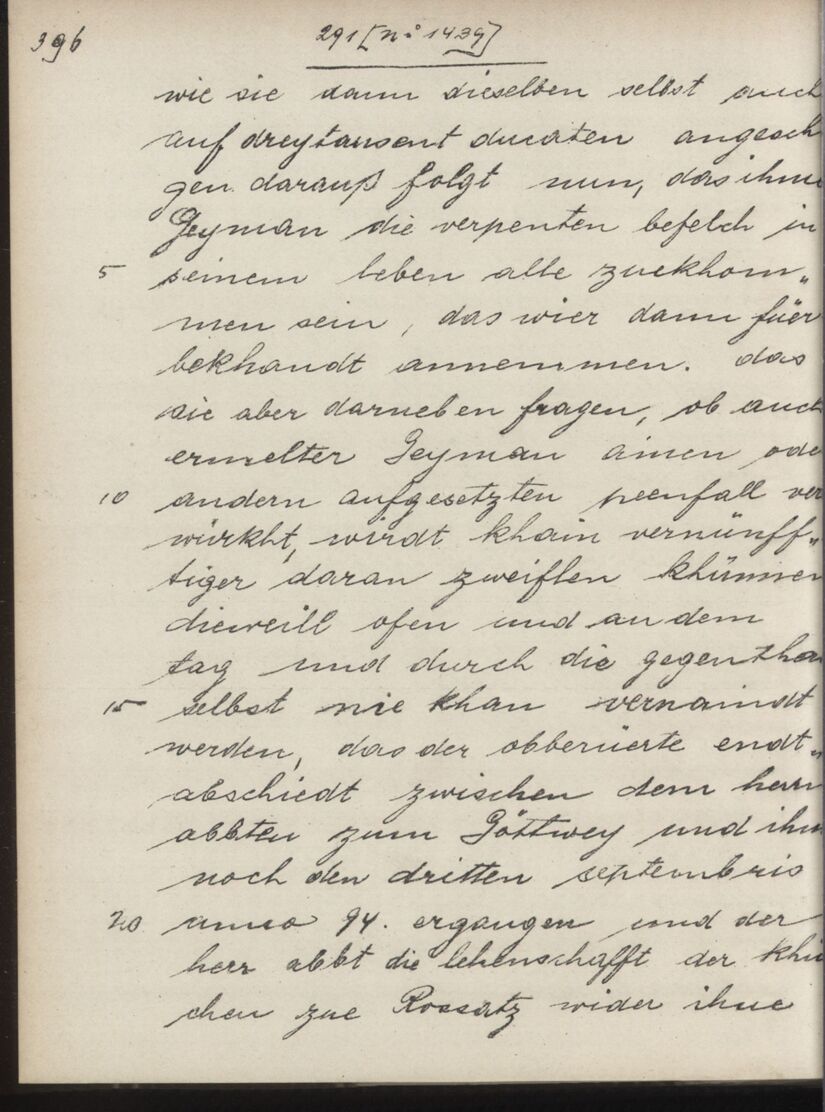 396
291 [n° 1439]
wie sie dann dieselben selbst auch
auf dreytausent ducaten angesch
gen darauß folgt nun, das ihme
Geyman die verpenten befelch in
5 seinem leben alle zuekhom„
men sein, das wier dann füer
bekhandt annemmen. das
sie aber darneben fragen, ob auch
ermelter Geyman ainen ode
10 andern aufgesetzten peenfall ver
würkht, wirdt khain vernünff„
tiger daran zweiflen khünnen
dieweill ofen und an dem
tag und durch die gegentha
15 selbst nie khan vernaindt
werden, das der obberüerte endt„
abschiedt zwischen dem herrn
abbten zum Göttwey und ihm
noch den dritten septembris
20 anno 94. ergangen und der
herr abbt die lehenschafft der khü
chen zue Rossatz wider ihne